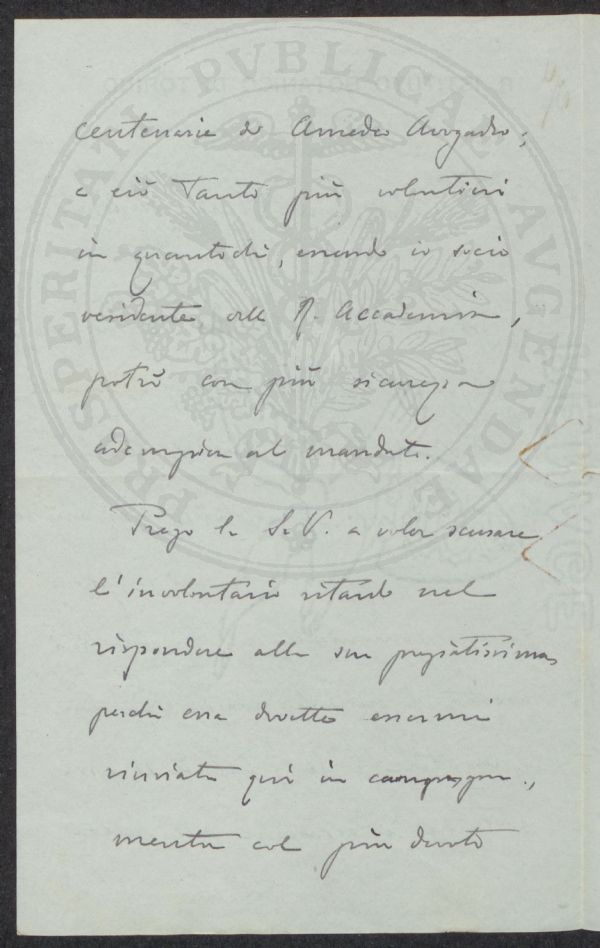 PROSPERITATI PVBLICAE AVGENDAE
centenario di Amedeo Avogadro;
e ciò tanto più volentieri
in quantochè, essendo io socio
residente della R. Accademia,
potrò con più sicurezza
adempiere al mandato.
Prego la S. V. a voler scusare
l'involontario ritardo nel
rispondere alla sua pregiatissima,
perchè essa dovette essermi
rinviata qui in campagna.,
mentre col più devoto